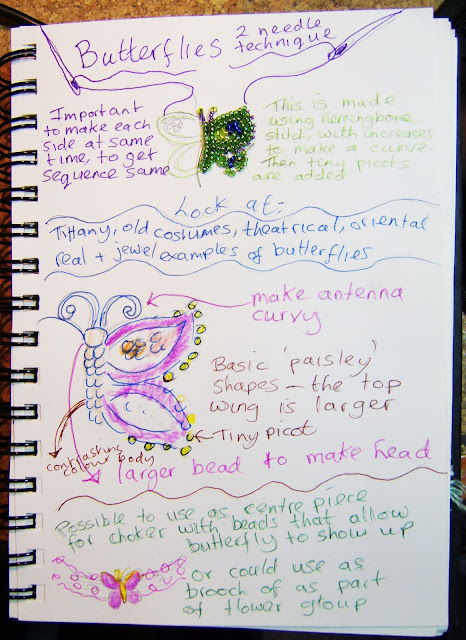 Butterflies 2 needle
technique
Important
to make each
side at same
time, to get
sequence same
This is made
using herringbone
stitch, with increases
to make a curve.
Then tiny picots
are added
Look at:
Tiffany, old costumes, theatrical, oriental
real + jewel examples of butterflies
make antenna
curvy
Basic 'paisley'
shapes - the top
wing is larger
Tiny picot
contrasting
colour body
larger bead to make head
Possible to use as centre piece
for choker with beads that allow
butterfly to show up
or could use as
brooch of as part
of flower group